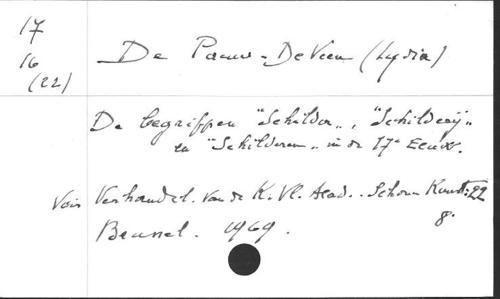 17
16
(22)
De Pauw - De Veen (Lydia)
De begrippen "Schilder", "Schilderij"
en "Schilderen" in de 17e Eeuw.
Voir Verhandel. van de K. Vl. Acad. Schone Kunst: 22
Brussel. 1969. 8°